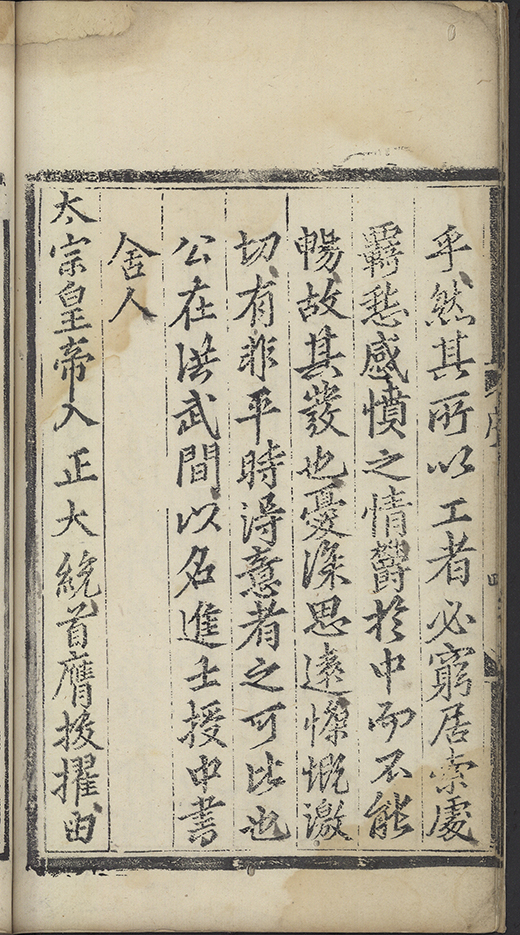 乎然其所以工者必窮居索處
羇愁感憤之情欝於中而不能
暢故其發也憂深思遠慷慨激
切有非平時得意者之可比也
公在洪武間以名進士授中書
舍人
太宗皇帝入正大統首膺拔擢由